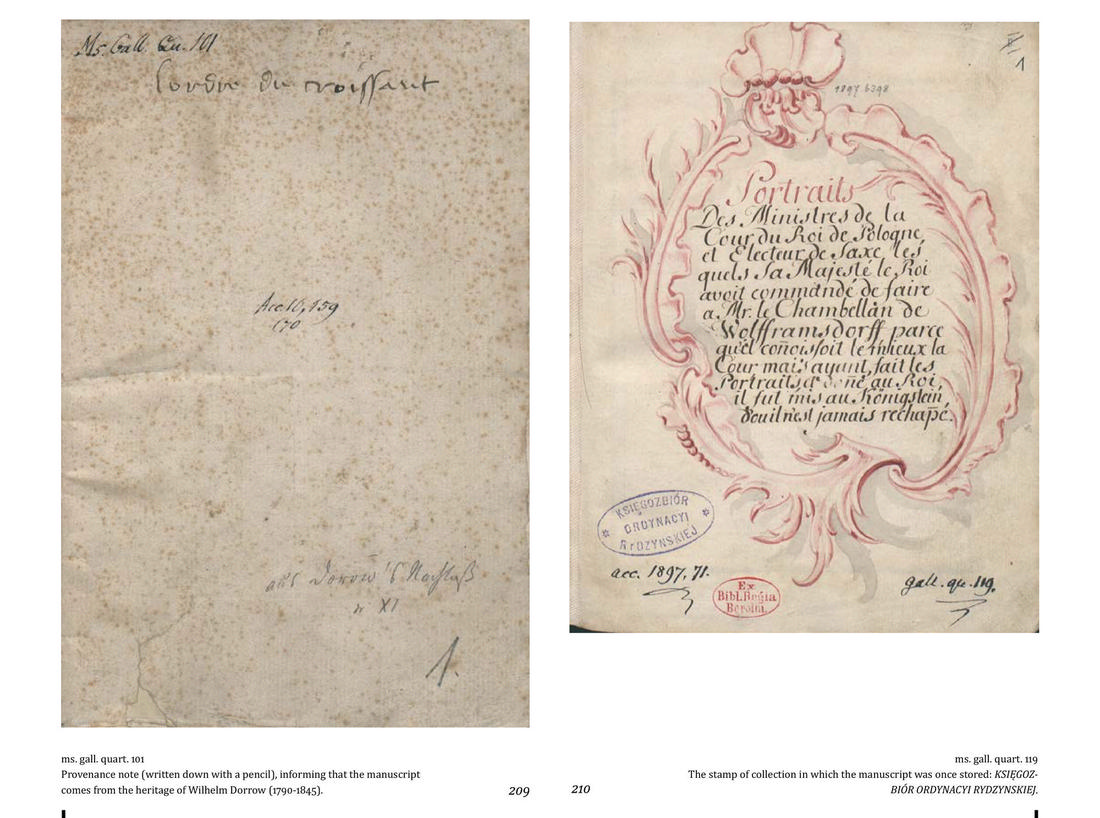 Ms. Gall. Qu. 101
Lordre du croissant
Acc. 16,159
170
aus Dorow's Nachlaß
n XI
1.
ms. gall. quart. 101
Provenance note (written down with a pencil), informing that the manuscript
comes from the heritage of Wilhelm Dorrow (1790-1845).
209
1
1897 6398
Portraits
Des Ministres de la
Cour du Roi de Pologne,
et Electeur de Saxe, les
quels Sa Majesté le Roi
avoit commandé de faire
a. Mr. le Chambellan de
Wolfframsdorff parce
qu'el coñoissoit le mieux la
Cour mais ayant, fait les
Portraits, & doñé au Roi,
il fut mis au Königstein
d'ou il n'est jamais rechapé.
KSIĘGOZBIÓR
ORDYNACYI
RYDZYNSKIEJ
acc. 1897, 71.
Ex
Bibl. Regia
Berolin.
gall. qu. 119.
ms. gall. quart. 119
The stamp of collection in which the manuscript was once stored: KSIĘGOZ-
BIÓR ORDYNACYI RYDZYNSKIEJ.
210